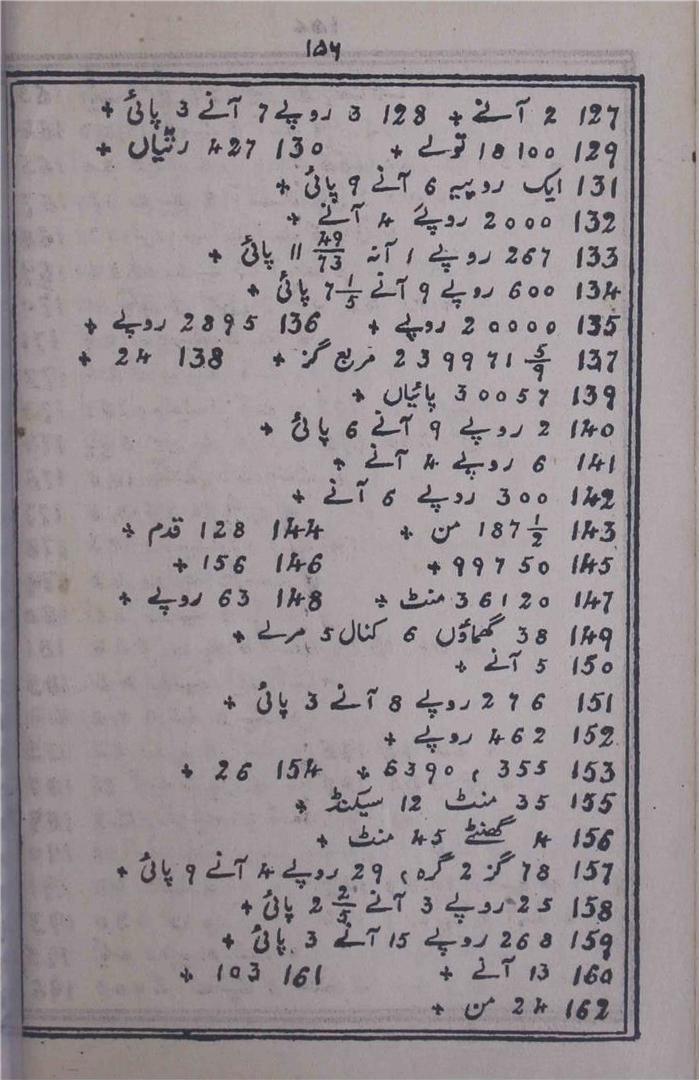 ۱۵۶
127 2 آنے + 128 3 روپے 7 آنے 3 پائی +
129 18100 تولے + 130 427 رتیاں +
131 ایک روپیہ 6 آنے 9 پائی +
132 2000 روپے 4 آنے +
133 267 روپے 1 آنہ 11 49/73 پائی +
134 600 روپے 9 آنے 7 1/5 پائی +
135 20000 روپے + 136 2895 روپے +
137 239971 5/9 مربع گز + 138 24 +
139 30057 پائیاں +
140 2 روپے 9 آنے 6 پائی +
141 6 روپے 4 آنے +
142 300 روپے 6 آنے +
143 187 1/2 من + 144 128 قدم +
145 99750 + 146 156 +
147 36120 منٹ + 148 63 روپے +
149 38 گھماؤں 6 کنال 5 مرلے +
150 5 آنے +
151 276 روپے 8 آنے 3 پائی +
152 462 روپے +
153 355 ، 6390 + 154 26 +
155 35 منٹ 12 سیکنڈ +
156 4 گھنٹے 45 منٹ +
157 78 گز 2 گرہ ، 29 روپے 4 آنے 9 پائی +
158 25 روپے 3 آنے 2 2/5 پائی +
159 268 روپے 15 آنے 3 پائی +
160 13 آنے + 161 103 +
162 24 من +